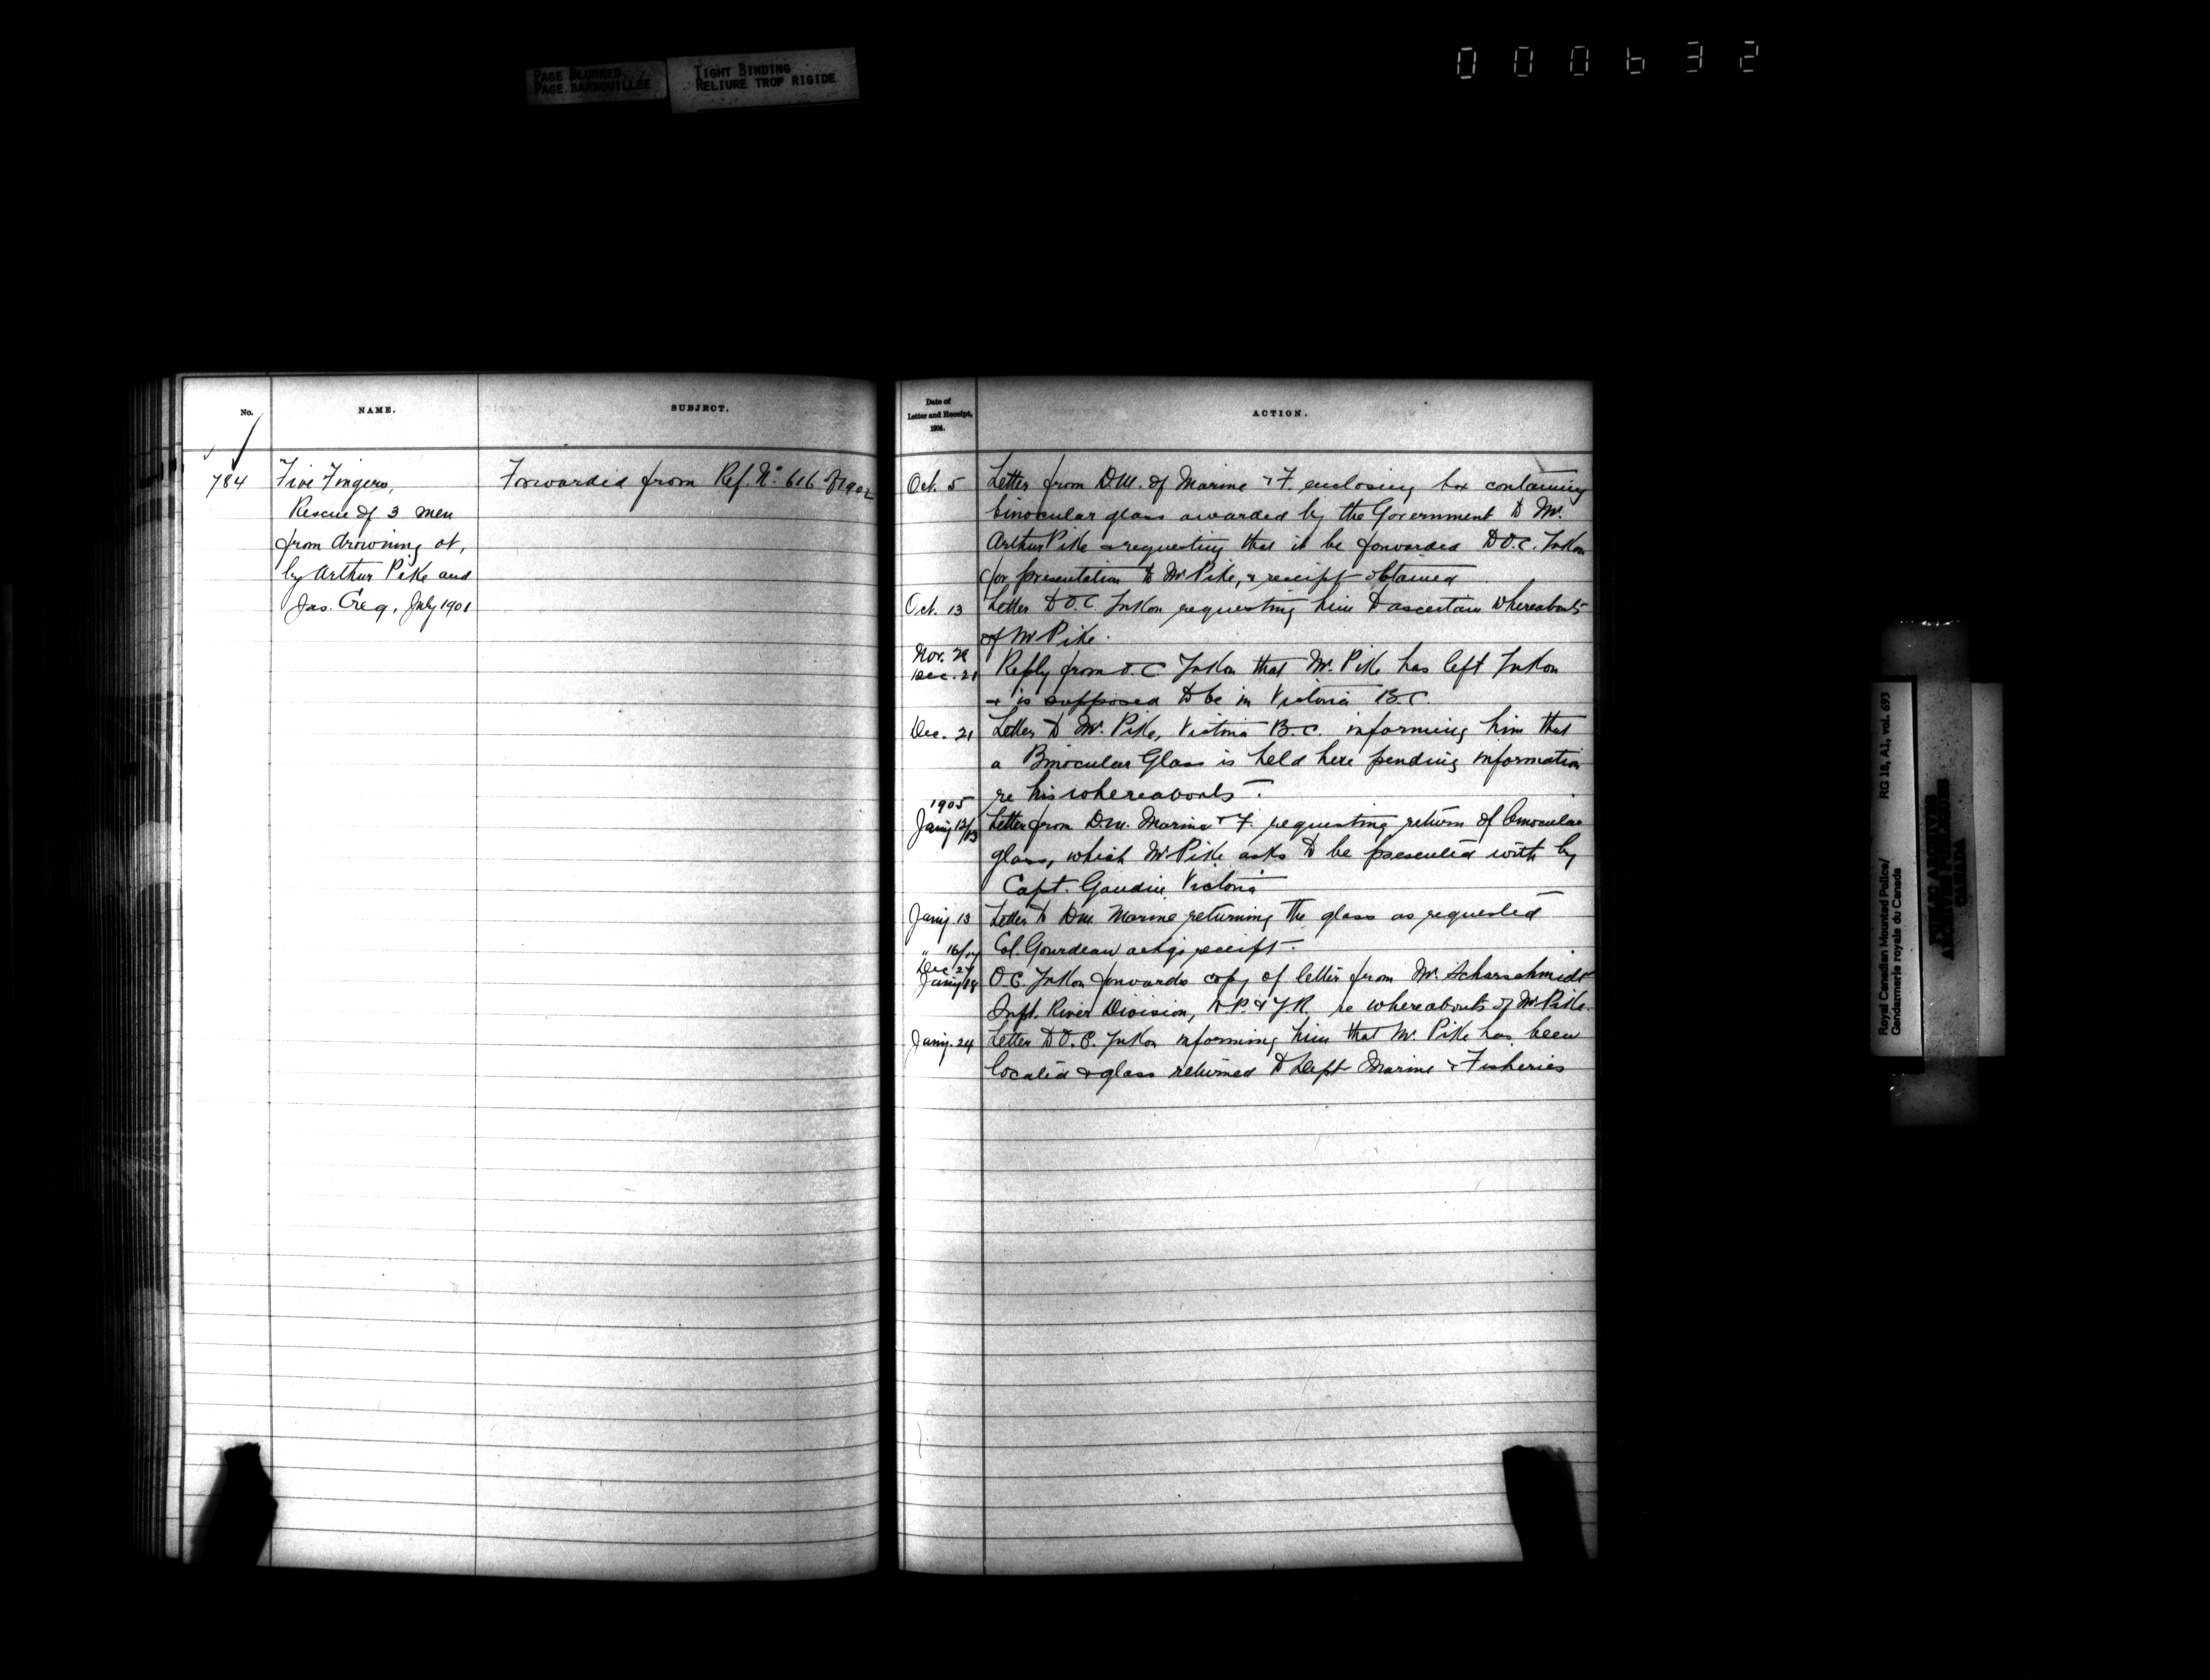 PAGE BLURRED
PAGE BARBOUILLEE
TIGHT BINDING
RELIURE TROP RIGIDE
000632
No.
NAME.
SUBJECT.
784
Five Fingers,
Rescue of 3 men
from drowning at,
by Arthur Pike and
Jas. Creg, July 1901
Forwarded from Ref. No 616 of 1902
Date of
Letter and Receipt,
1904.
ACTION.
Oct. 5 Letter from D.M. of Marine & F. enclosing box containing
binocular glass awarded by the Government to Mr.
Arthur Pike & requesting that it be forwarded to O.C. Yukon
for presentation to Mr Pike, & receipt obtained
Oct. 13 Letter to O.C. Yukon requesting him to ascertain whereabouts
of Mr Pike.
Nov. 29
Dec. 21 Reply from O.C. Yukon that Mr. Pike has left Yukon
& is supposed to be in Victoria B.C.
Dec. 21 Letter to Mr. Pike, Victoria B.C. informing him that
a Binocular Glass is held here pending information
re his whereabouts.
1905
Jany 12/13 Letter from D.M. Marine & F. requesting return of binocular
glass, which Mr Pike asks to be presented with by
Capt. Gaudin Victoria
Jany. 13 Letter to D.M. Marine returning the glass as requested
" 16/17 Col. Gourdeau ackgs receipt.
Dec 27
Jany 18 O.C. Yukon forwards copy of letter from Mr. Scharschmidt
Supt. River Division, W.P. & Y.R. re whereabouts of Mr Pike.
Jany. 24 Letter to O.C. Yukon informing him that Mr. Pike has been
located & glass returned to Dept Marine & Fisheries
Royal Canadian Mounted Police/
Gendarmerie royale du Canada
RG 18, A1, vol. 693
PUBLIC ARCHIVES
ARCHIVES PUBLIQUES
CANADA